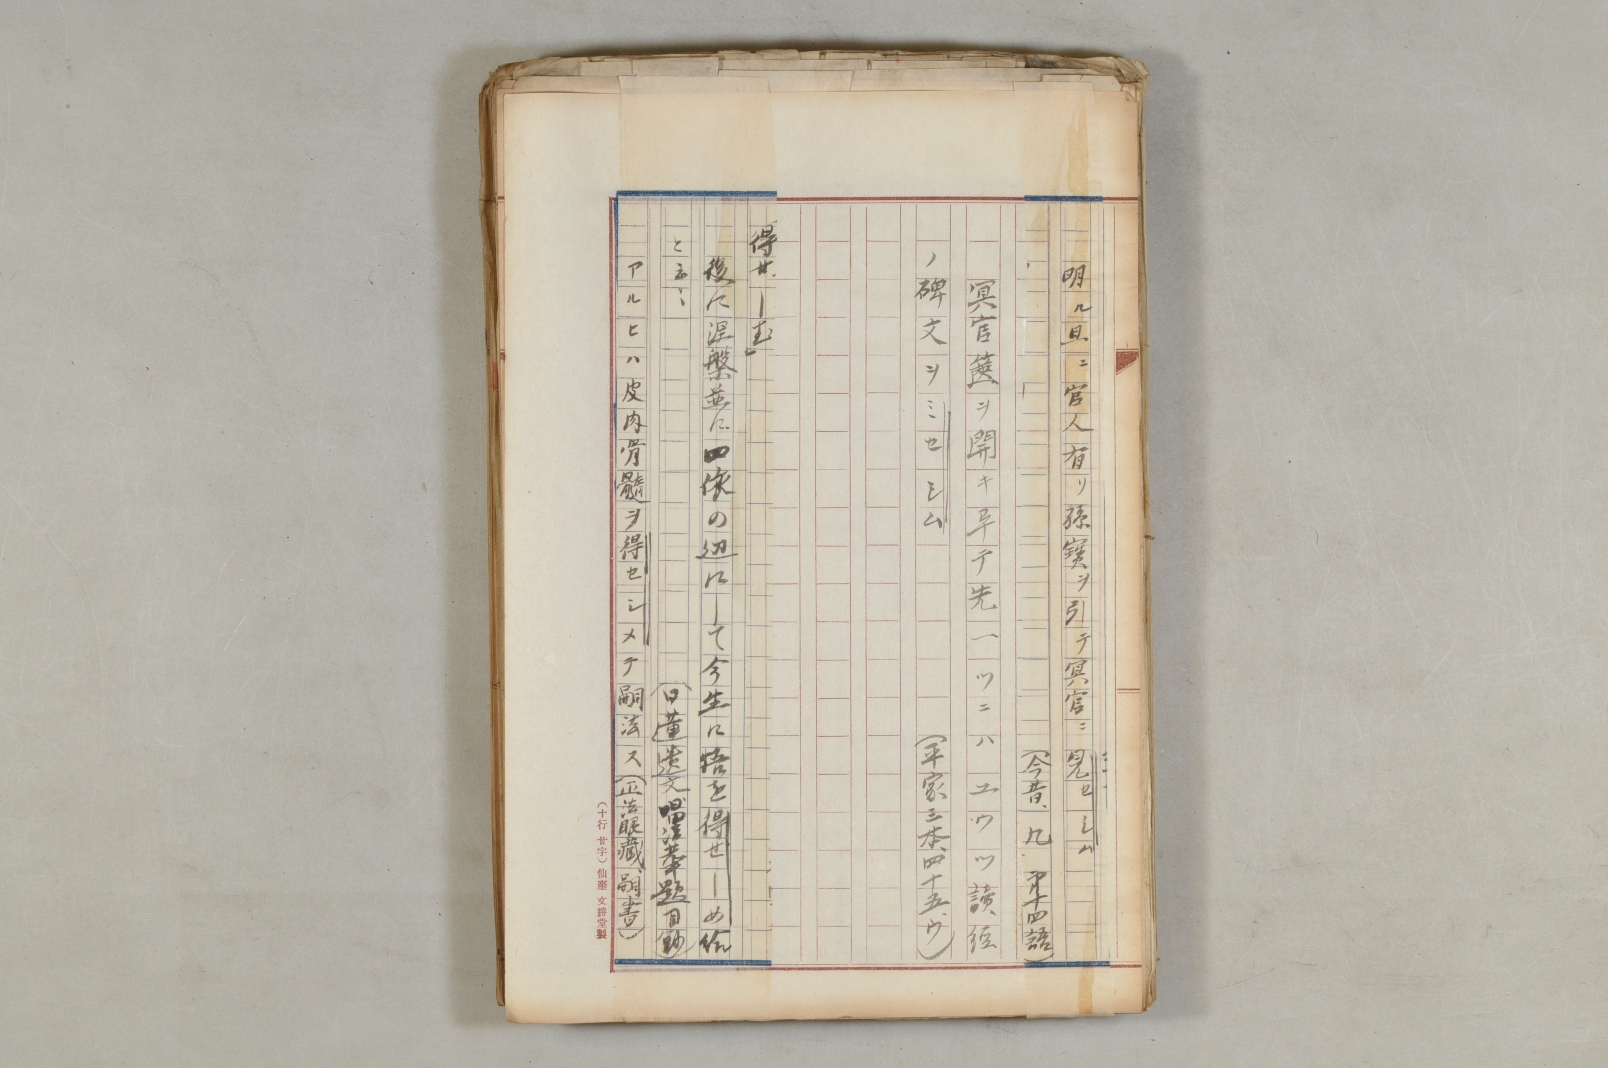 明ル旦ニ官人有リ孫寳ヲ引テ冥官ニ見セシム
(今昔、九、第十四語)
冥官篋ヲ開キ
テ先一ツニハ
ツ讀経
ノ碑文ヲミセシム
(平家三本、四十五、ウ)
得せしむ」
後に涅槃並に四依の辺にして今生に悟を得せしめ給
と云々
(日蓮遺文唱法華題目鈔)
アルヒハ皮肉骨髓ヲ得セシメテ嗣法ス(正法眼藏、嗣書)
(十行廿字)仙臺 文勝堂製